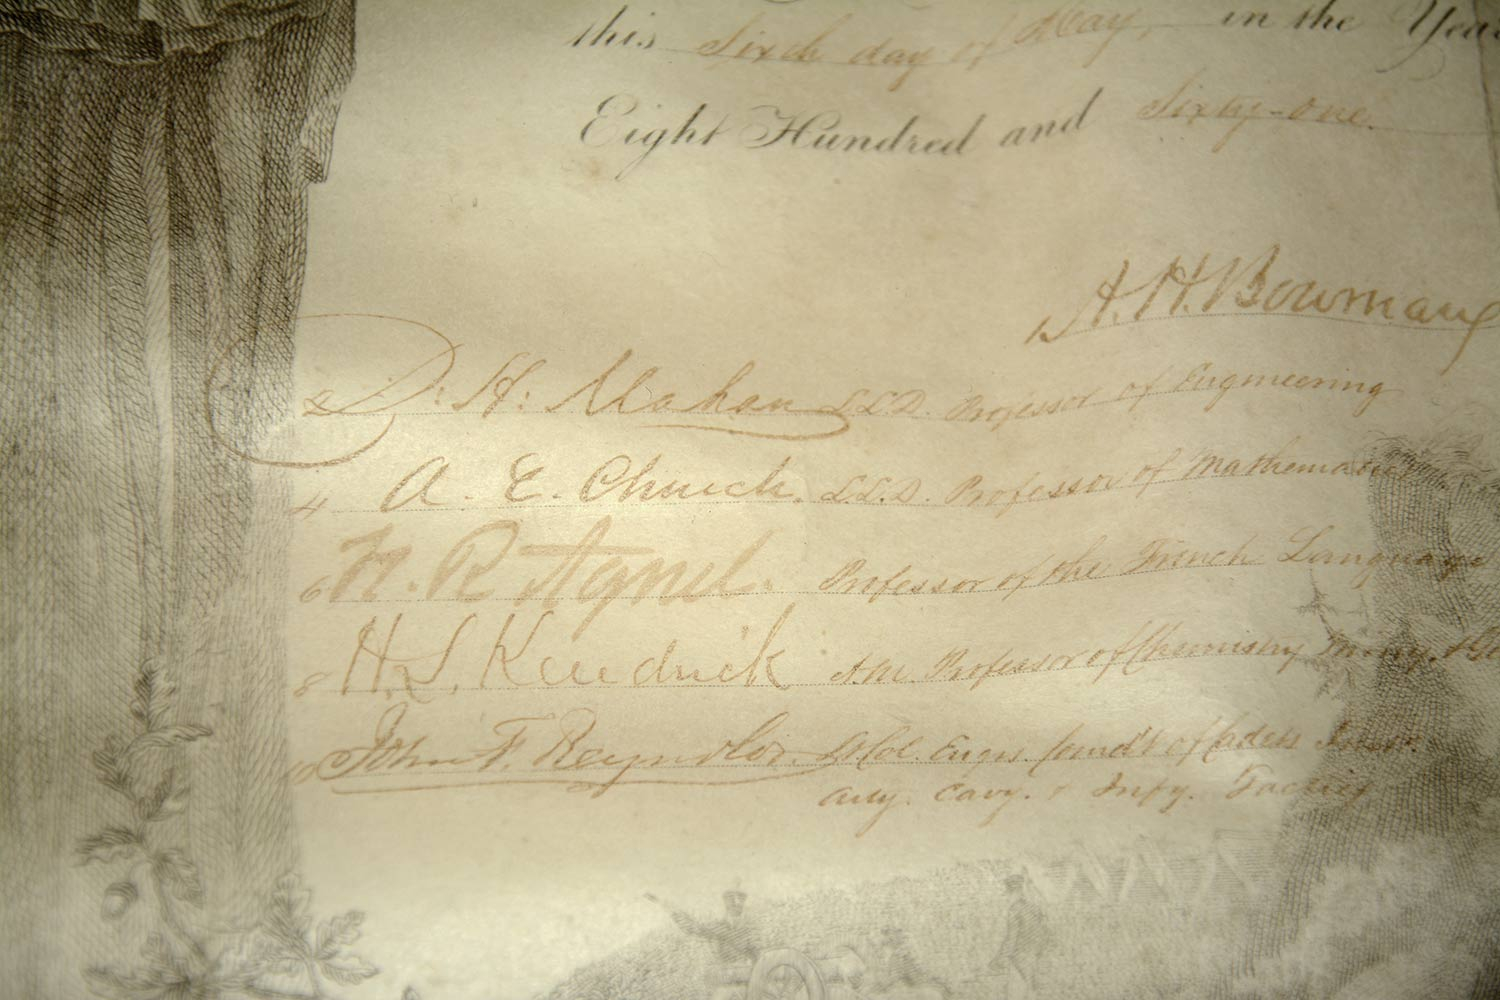 this Sixth day of May, in the Year
Eight Hundred and Sixty-one.
A. H. Bowman
2 D. H. Mahan LL.D. Professor of Engineering
4 A. E. Church. LL.D. Professor of Mathematics
6 H. R. Agnel. Professor of the French Language
8 H. L. Kendrick A.M. Professor of Chemistry
10 John F. Reynolds. Comdt of Cadets
Arty. Cavy. & Infy. Tactics